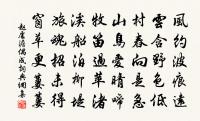 風約波痕遠
雲含野色低
村舂急
山鳥愛晴啼
牧笛過
船泊柳
旅魂招未得
窗草更萋萋
偶成詞典網集